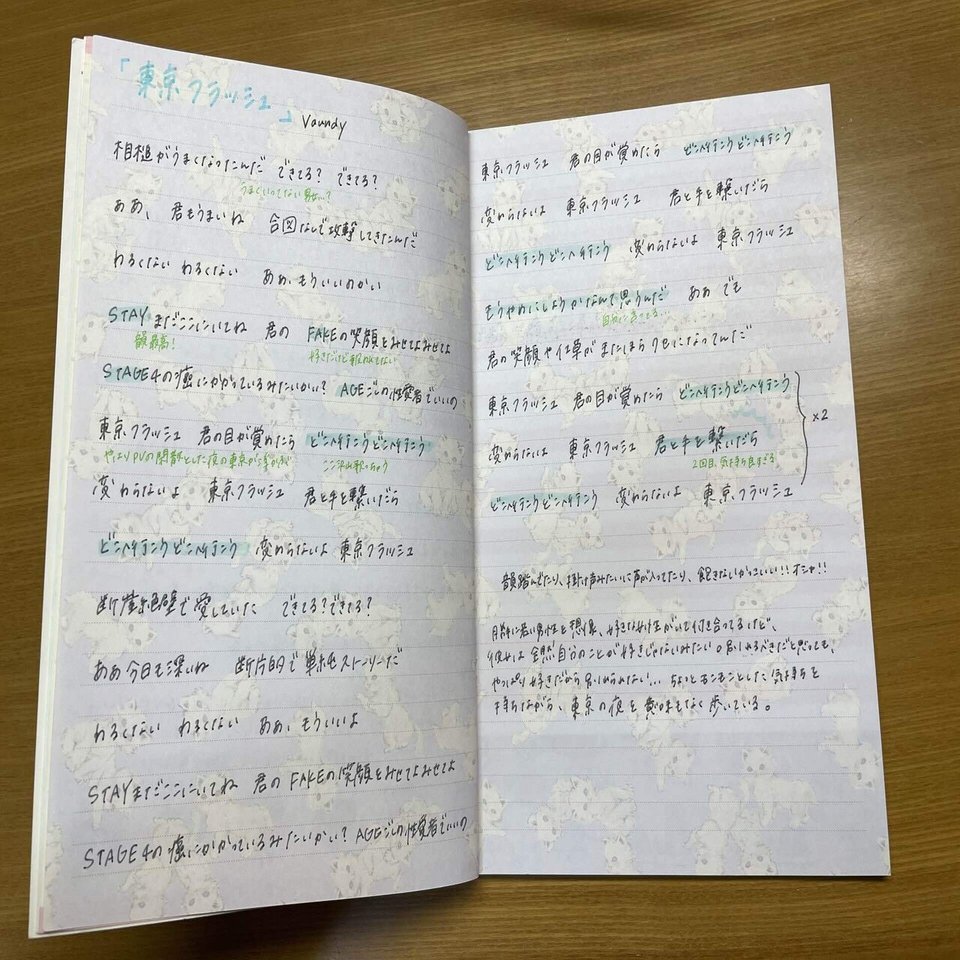 「東京フラッシュ」
Vaundy
相槌がうまくなったんだ できてる? できてる?
うまくいってない男女…?
ああ、君もうまいね 合図なしで攻撃してきたんだ
わるくない わるくない ああ、もういいのかい
STAYまだここにいてね 君の FAKEの笑顔をみせてよみせてよ
韻最高! 好きだけど報われてない
STAGE4の癌にかかっているみたいかい? AGEごしの性愛者でいいの
東京フラッシュ 君の目が覚めたら どこへ行こうどこへ行こう
やはりPVの閑散とした夜の東京が
変わらないよ 東京フラッシュ 君と手を繋いだら
どこへ行こうどこへ行こう 変わらないよ 東京フラッシュ
断崖絶壁で愛していた できてる?できてる?
ああ今日も深いね 断片的で単純なストーリーだ
わるくない わるくない ああ、もういいよ
STAYまだここにいてね 君の FAKEの笑顔をみせてよみせてよ
STAGE4の癌にかかっているみたいかい? AGEごしの性愛者でいいの
東京フラッシュ 君の目が覚めたら どこへ行こうどこへ行こう
変わらないよ 東京フラッシュ 君と手を繋いだら
どこへ行こうどこへ行こう 変わらないよ 東京フラッシュ
もうやめにしようかなんて思うんだ ああ でも
自分に言ってる…
君の笑顔や仕草がまたほらクセになってんだ
東京フラッシュ 君の目が覚めたら どこへ行こうどこへ行こう
変わらないよ 東京フラッシュ 君と手を繋いだら
×2
2回目、気持ち良すぎる
どこへ行こうどこへ行こう 変わらないよ 東京フラッシュ
韻踏んでたり、掛け声みたいに声が入ってたり、飽きないかっこいい!!オシャ!!
月並に若い男性を想像、好きな女性がいて付き合ってるけど、
彼女は全然自分のことが好きじゃないみたい。諦めるべきだと思っても、
やっぱり好きだから諦められない… ちょっともこもことした気持ちを
持ちながら、東京の夜を意味もなく歩いている。